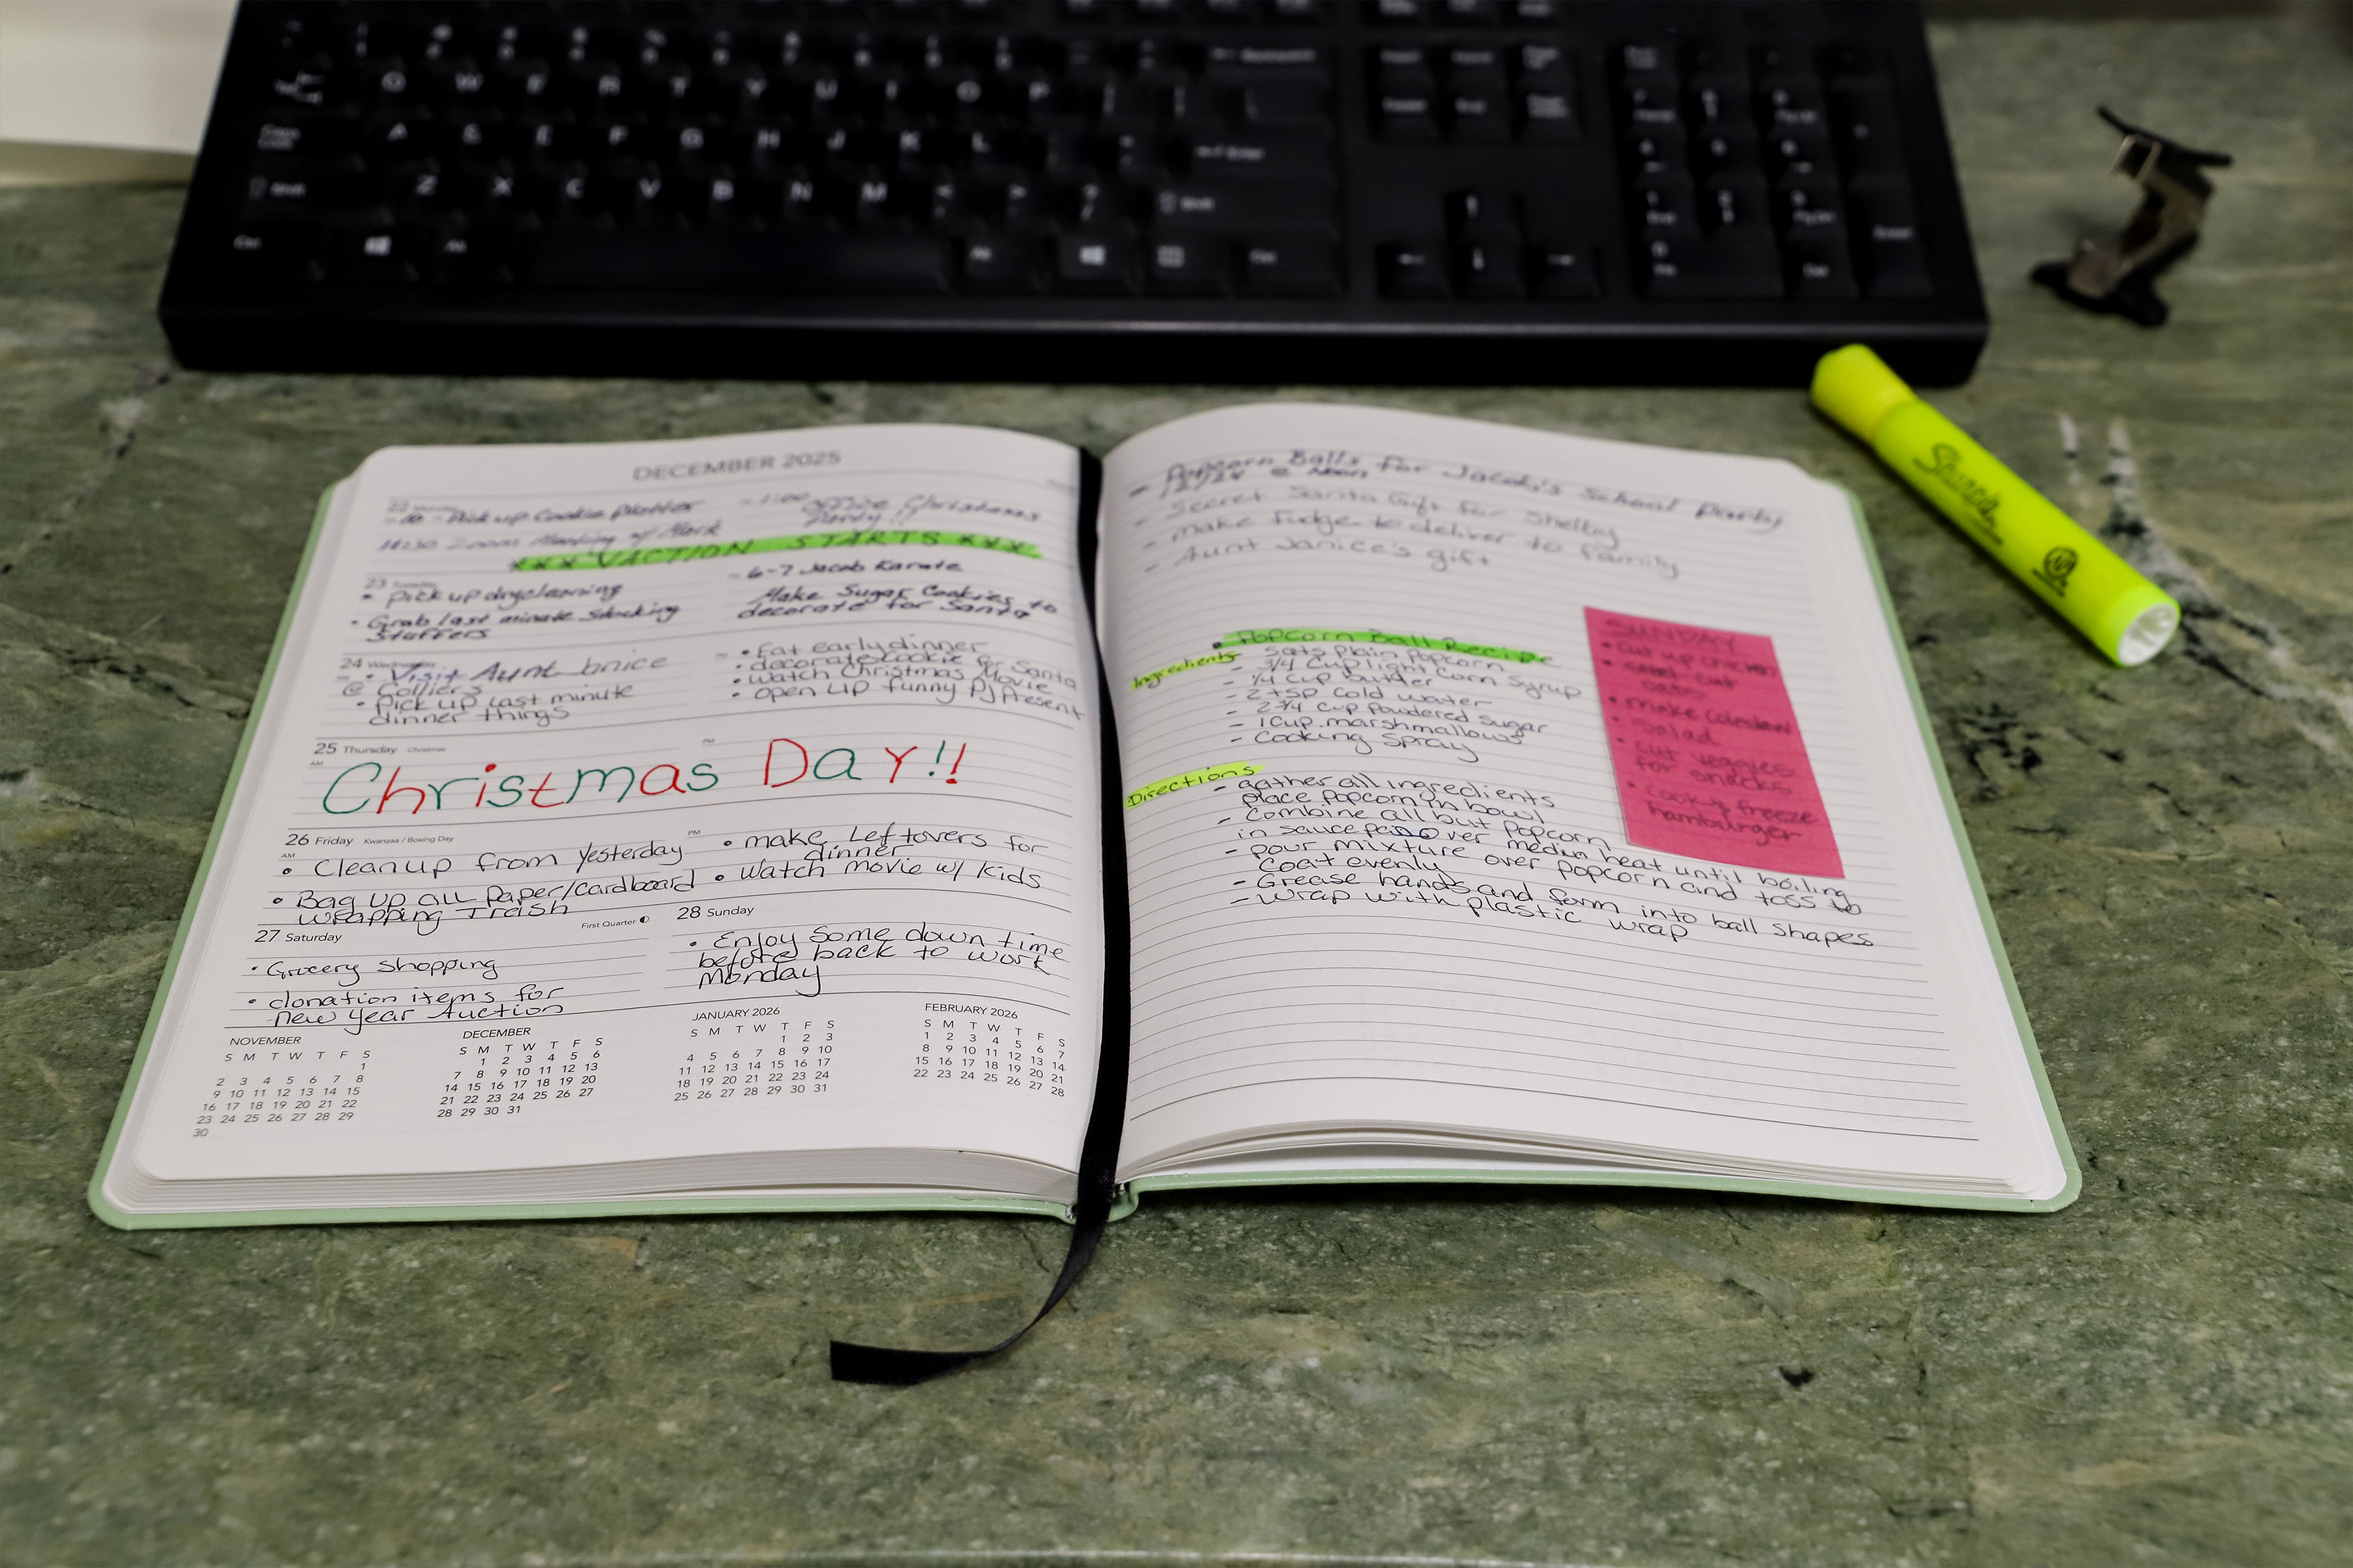 DECEMBER 2025
22 Monday
- Pick up Cookie Platter
10:30 Zoom Meeting w/ Mark
- 11:00 Office Christmas
Party!!
*** VACTION STARTS ***
23 Tuesday
• Pick up drycleaning
• Grab last minute stocking
stuffers
- 6-7 Jacob Karate
Make Sugar Cookies to
decorate for Santa
24 Wednesday
• Visit Aunt Janice
@ Colliers
• Pick up last minute
dinner things
• Eat early dinner
• decorate cookie for Santa
• Watch Christmas Movie
• open up funny PJ Present
25 Thursday Christmas
AM
PM
Christmas Day!!
26 Friday Kwanzaa / Boxing Day
AM
• Clean up from yesterday
• Bag up all Paper/Cardboard
wrapping Trash
PM
• make Leftovers for
dinner
• Watch movie w/ kids
27 Saturday
First Quarter
• Grocery Shopping
• donation items for
new year Auction
28 Sunday
• Enjoy Some down time
before back to work
Monday
NOVEMBER
S M T W T F S
1
2 3 4 5 6 7 8
9 10 11 12 13 14 15
16 17 18 19 20 21 22
23 24 25 26 27 28 29
30
DECEMBER
S M T W T F S
1 2 3 4 5 6
7 8 9 10 11 12 13
14 15 16 17 18 19 20
21 22 23 24 25 26 27
28 29 30 31
JANUARY 2026
S M T W T F S
1 2 3
4 5 6 7 8 9 10
11 12 13 14 15 16 17
18 19 20 21 22 23 24
25 26 27 28 29 30 31
FEBRUARY 2026
S M T W T F S
1 2 3 4 5 6 7
8 9 10 11 12 13 14
15 16 17 18 19 20 21
22 23 24 25 26 27 28
- Popcorn Balls for Jacob's School Party
12/24 @ Noon
- Secret Santa Gift for Shelby
- make fudge to deliver to family
- Aunt Janice's gift
• Popcorn Ball Recipe
Ingredients
- 5qts Plain Popcorn
- 3/4 Cup light Corn Syrup
- 1/4 Cup butter
- 2 tsp Cold water
- 2 3/4 Cup Powdered Sugar
- 1 Cup marshmallows
- Cooking Spray
Directions
- gather all ingredients
Place Popcorn in bowl
- Combine all but popcorn
in sauce pan over medium heat until boiling
- pour mixture over popcorn and toss to
Coat evenly
- Grease hands and form into ball shapes
- wrap with plastic wrap
SUNDAY
• cut up chicken
•
• make coleslaw
• Salad
• cut veggies
for snacks
• cook & freeze
hamburger
Sharpie
Backspace
Q W E R T Y U I O P
Caps
Lock
A S D F G H J K L
Enter
Shift
Z X C V B N M
Shift
Ctrl
Alt
Alt
Ctrl
Enter